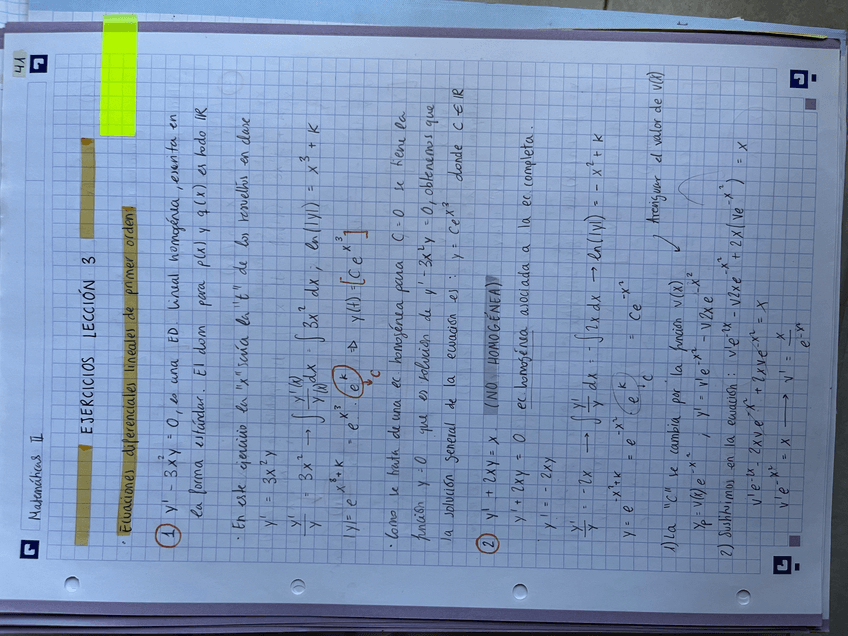 41
Matemáticas II
EJERCICIOS LECCIÓN 3
· Ecuaciones diferenciales lineales de primer orden:
1 y' - 3x²y = 0, es una ED lineal homogénea, escrita en
la forma estándar. El dom para p(x) y q(x) es todo IR
· En este ejercicio la "x" sería la "t" de los resueltos en clase
y' = 3x²y
y'/y = 3x² → ∫ y'(x)/y(x) dx = ∫ 3x² dx ; ln(|y|) = x³ + K
|y| = e^(x³+K) = e^(x³) · e^K ⇒ y(t) = [C e^(x³)]
C
· Como se trata de una ec homogénea para C=0 se tiene la
función y=0 que es solución de y' - 3x²y = 0, obtenemos que
la solución general de la ecuación es: y = Ce^(x³) donde C ∈ IR
2 y' + 2xy = x. (NO HOMOGÉNEA)
y' + 2xy = 0 ec homogénea asociada a la ec completa.
y' = -2xy
y'/y = -2x → ∫ y'/y dx = -∫ 2x dx → ln(|y|) = -x² + K
y = e^(-x²+K) = e^(-x²) · e^K = Ce^(-x²)
C
1) La "C" se cambia por la función v(x) Averiguar el valor de v(x)
yp = v(x)e^(-x²) , y' = v'e^(-x²) - v2xe^(-x²)
2) Sustituimos en la ecuación: v'e^(-2x) - v2xe^(-x²) + 2x(ve^(-x²)) = x
v'e^(-2x) - 2xve^(-x²) + 2xve^(-x²) = x
v'e^(-x²) = x → v' = x/e^(-x²)